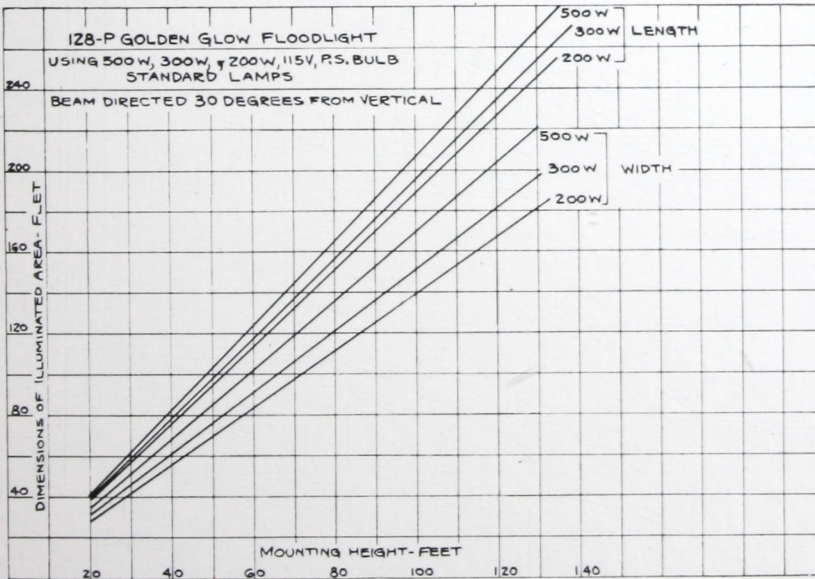 128-P GOLDEN GLOW FLOODLIGHT
USING 500W, 300W, & 200W, 115V, P.S. BULB
STANDARD LAMPS
BEAM DIRECTED 30 DEGREES FROM VERTICAL
500W
300W LENGTH
200W
500W
300W WIDTH
200W
DIMENSIONS OF ILLUMINATED AREA-FEET
240
200
160
120
80
40
MOUNTING HEIGHT-FEET
20 40 60 80 100 120 140